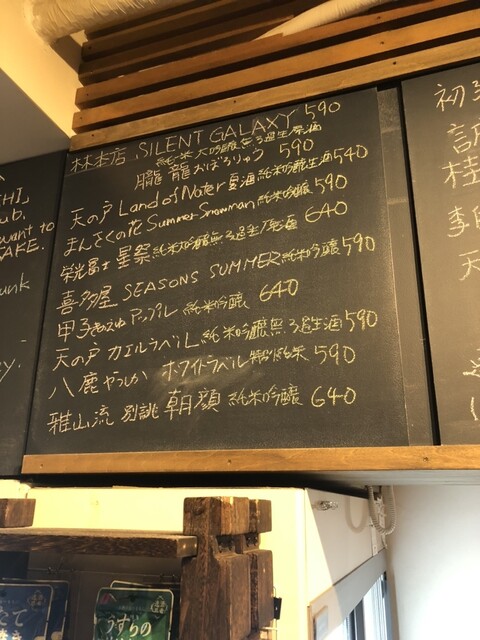 林本店 SILENT GALAXY 590
純米大吟醸無ろ過生原酒
朧龍 おぼろりゅう 590
天の戸 Land of Water 夏酒 純米吟醸生酒 540
まんさくの花 Summer Snowman 純米吟醸 590
栄光冨士 星祭 純米大吟醸無ろ過生原酒 640
喜多屋 SEASONS SUMMER 純米吟醸 590
甲子きのえね アップル 純米吟醸 640
天の戸 カエルラベル 純米吟醸無ろ過生酒 590
八鹿 やつしか ホワイトラベル 特別純米 590
雅山流 別誂 朝顔 純米吟醸 640
HI,
ub.
want to
SAKE.
unk
y.
初
桂
李
天
たて
うすらの